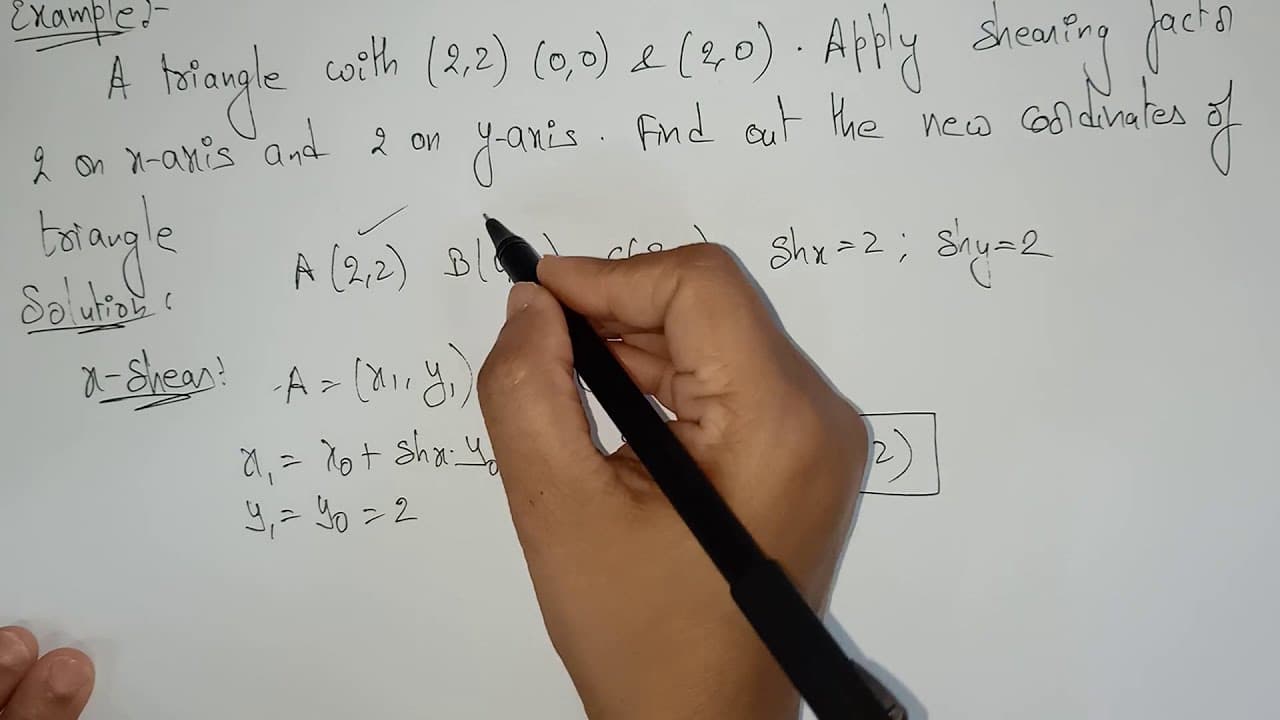 Example:-
A triangle with (2,2) (0,0) & (2,0). Apply shearing factor
2 on x-axis and 2 on y-axis. Find out the new coordinates of
triangle
A (2,2) B( shx = 2 ; shy = 2
Solution:
x-Shear: A = (x₁, y₁)
x₁ = x₀ + shx. y₀ 2)
y₁ = y₀ = 2